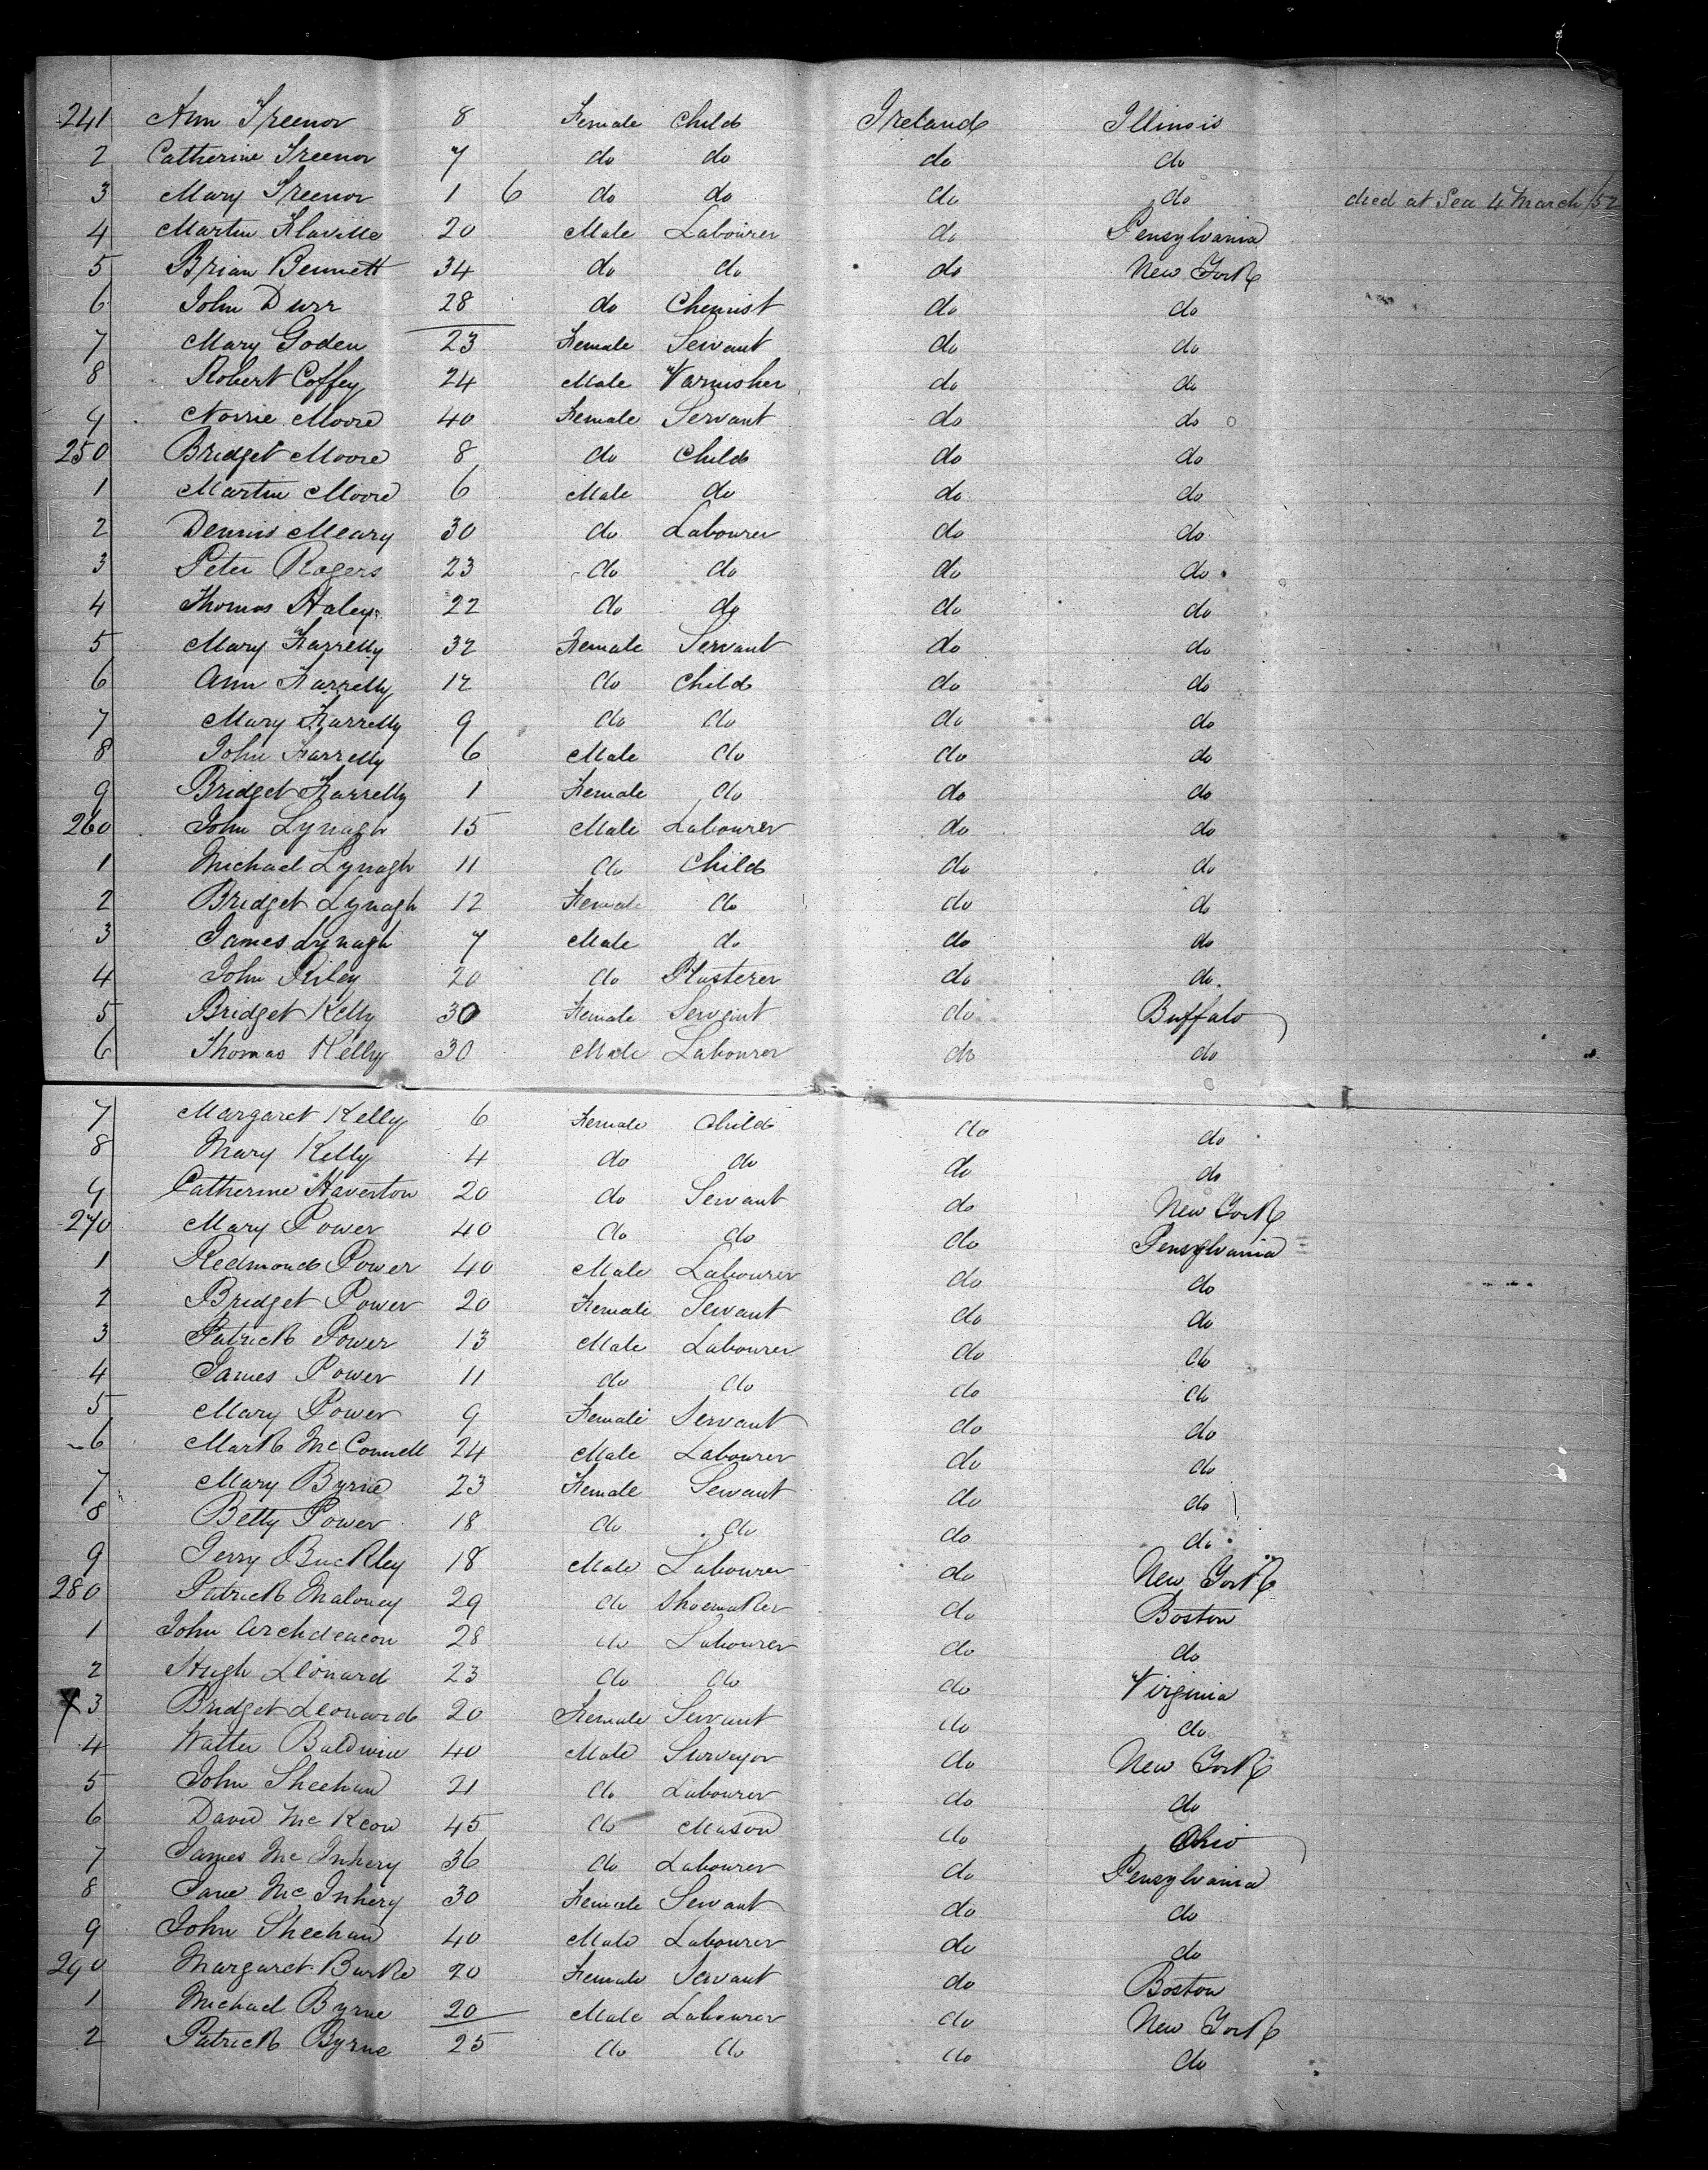 241 Ann Treenor 8 Female Child Ireland Illinois
2 Catherine Treenor 7 do do do do
3 Mary Treenor 1 6 do do do do died at Sea 4 March/52
4 Martin Flaville 20 Male Labourer do Pensylvania
5 Brian Bennett 34 do do do New York
6 John Durr 28 do Chemist do do
7 Mary Goden 23 Female Servant do do
8 Robert Coffey 24 Male Varnisher do do
9 Norrie Moore 40 Female Servant do do
250 Bridget Moore 8 do Child do do
1 Martin Moore 6 Male do do do
2 Dennis Meary 30 do Labourer do do
3 Peter Rogers 23 do do do do
4 Thomas Haley 22 do do do do
5 Mary Farrelly 32 Female Servant do do
6 Ann Farrelly 12 do Child do do
7 Mary Farrelly 9 do do do do
8 John Farrelly 6 Male do do do
9 Bridget Farrelly 1 Female do do do
260 John Lynagh 15 Male Labourer do do
1 Michael Lynagh 11 do Child do do
2 Bridget Lynagh 12 Female do do do
3 James Lynagh 7 Male do do do
4 John Riley 20 do Plusterer do do
5 Bridget Kelly 30 Female Servant do Buffalo
6 Thomas Kelly 30 Male Labourer do do
7 Margaret Kelly 6 Female Child do do
8 Mary Kelly 4 do do do do
9 Catherine Haverton 20 do Servant do New York
270 Mary Power 40 do do do Pensylvania
1 Redmond Power 40 Male Labourer do do
2 Bridget Power 20 Female Servant do do
3 Patrick Power 13 Male Labourer do do
4 James Power 11 do do do do
5 Mary Power 9 Female Servant do do
6 Mark McConnell 24 Male Labourer do do
7 Mary Byrne 23 Female Servant do do
8 Betty Power 18 do do do do
9 Jerry Buckley 18 Male Labourer do New York
280 Patrick Maloney 29 do Shoemaker do Boston
1 John Archdeacon 28 do Labourer do do
2 Hugh Leonard 23 do do do Virginia
3 Bridget Leonard 20 Female Servant do do
4 Walter Baldwin 40 Male Surveyor do New York
5 John Sheehan 21 do Labourer do do
6 David McKeon 45 do Mason do Ohio
7 James McInhery 36 do Labourer do Pensylvania
8 Jane McInhery 30 Female Servant do do
9 John Sheehan 40 Male Labourer do do
290 Margaret Burke 20 Female Servant do Boston
1 Michael Byrne 20 Male Labourer do New York
2 Patrick Byrne 25 do do do do